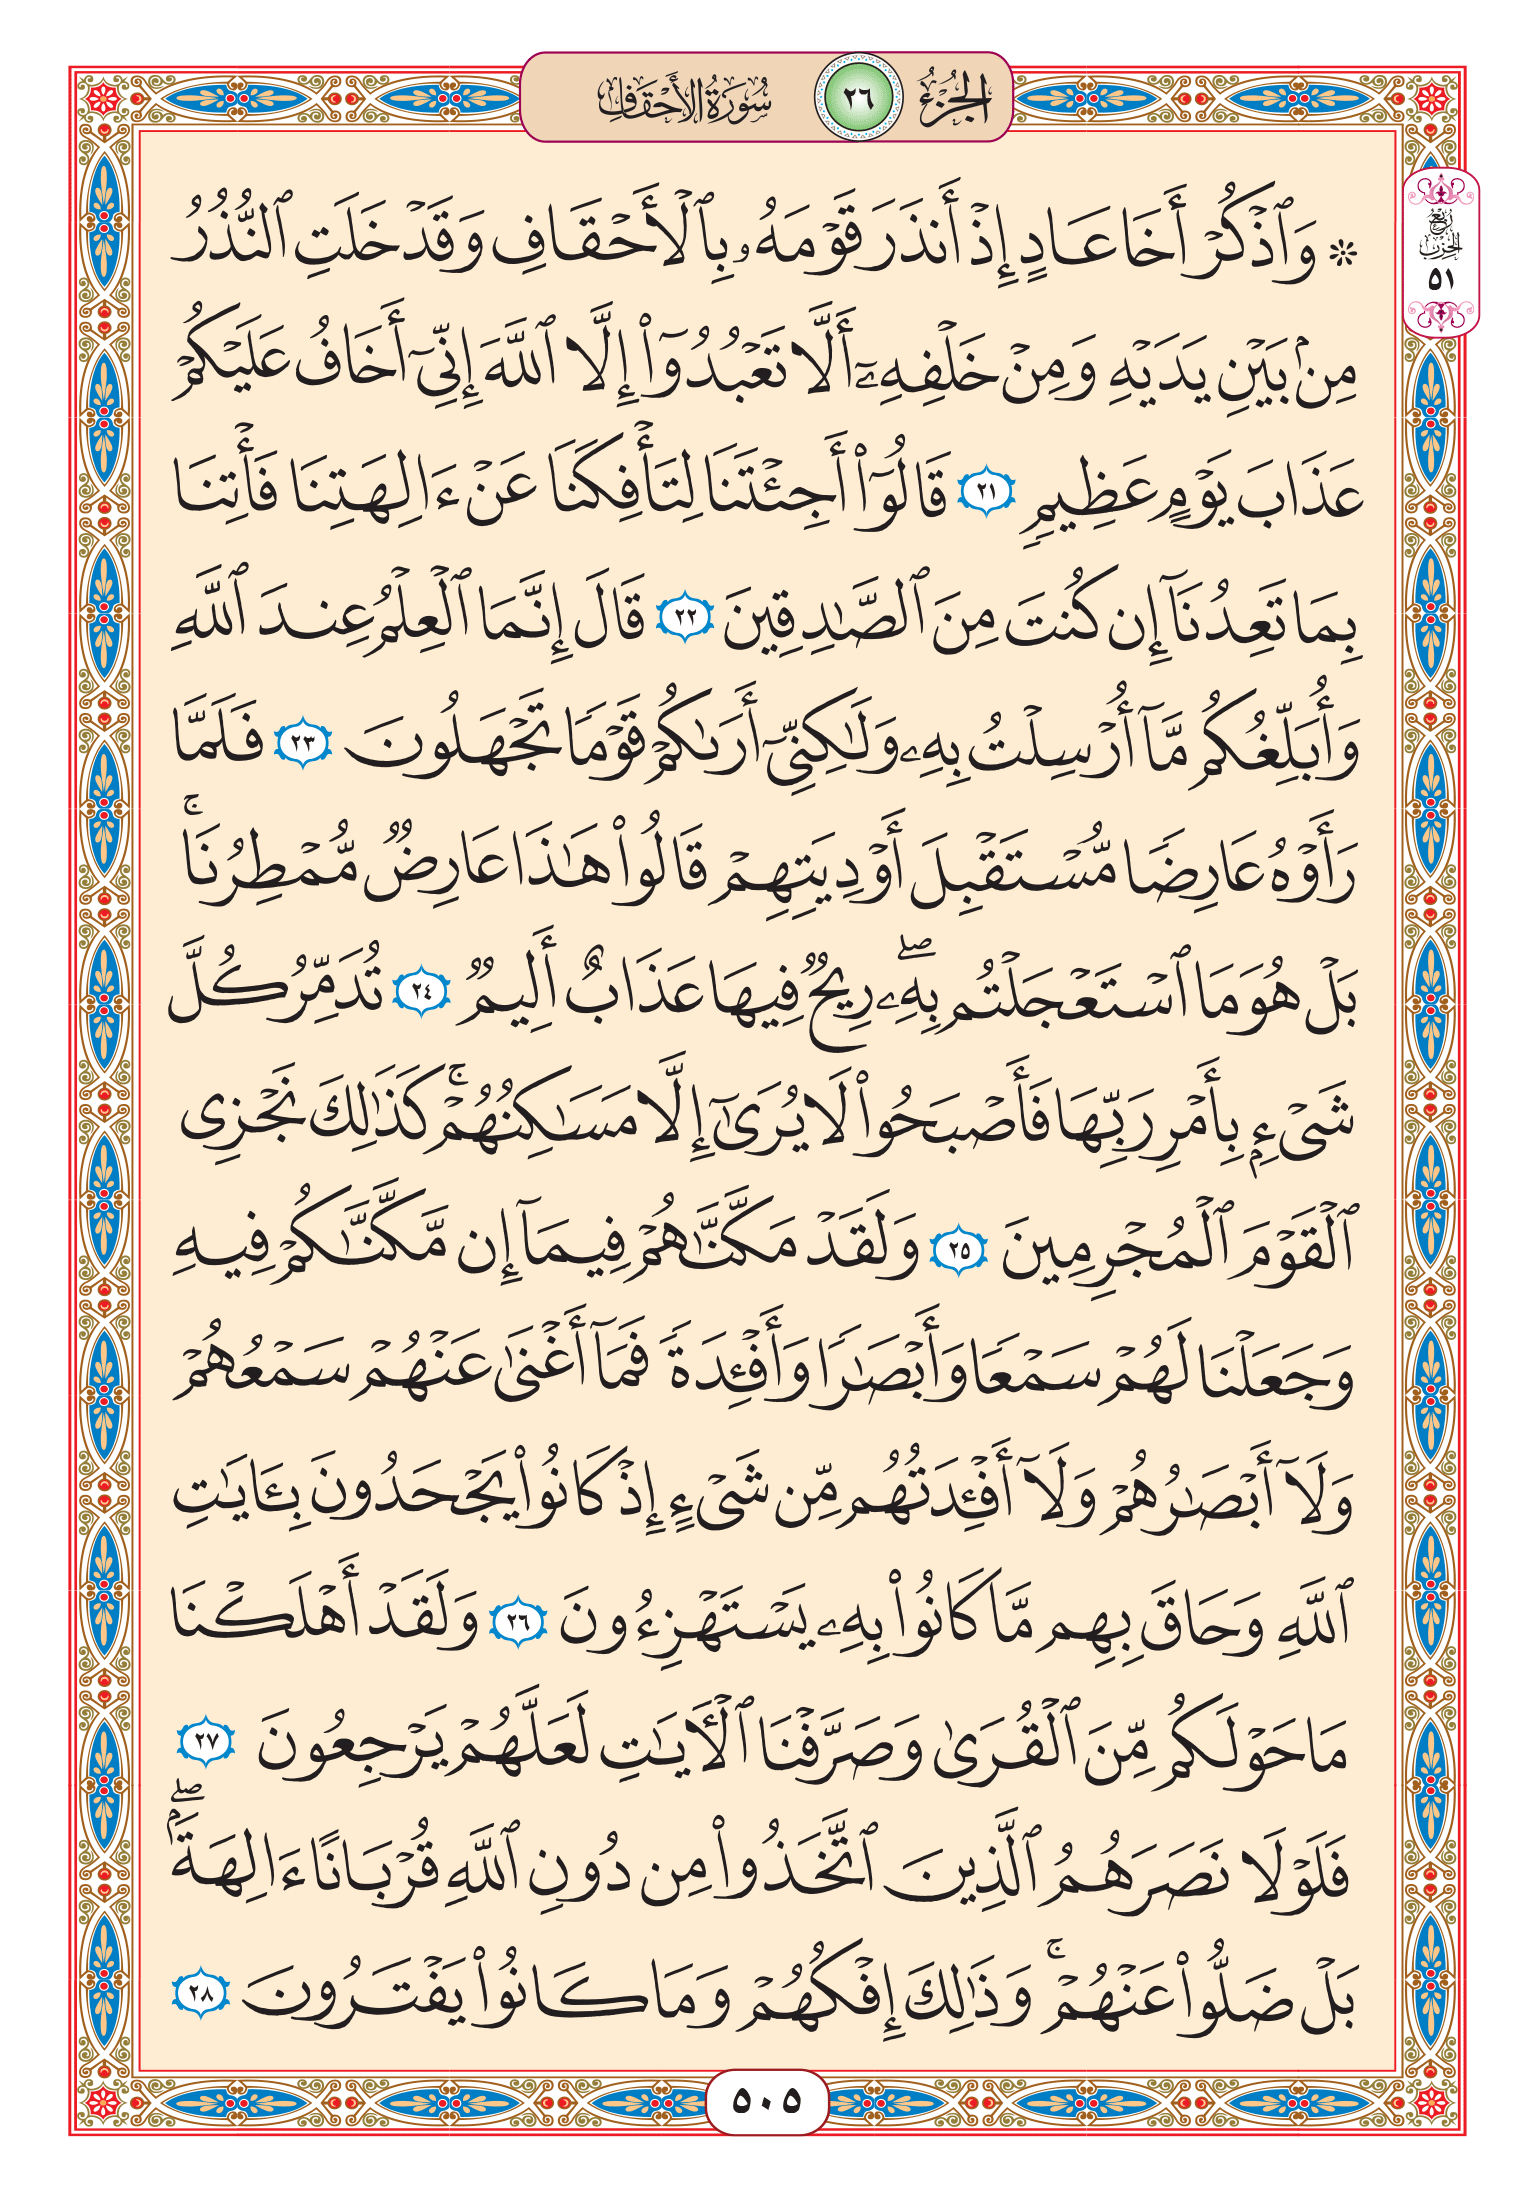 الجزء ٢٦ سورة الأحقاف
ربع
الحزب
٥١
۞ وَٱذۡكُرۡ أَخَا عَادٍ إِذۡ أَنذَرَ قَوۡمَهُۥ بِٱلۡأَحۡقَافِ وَقَدۡ خَلَتِ ٱلنُّذُرُ
مِنۢ بَيۡنِ يَدَيۡهِ وَمِنۡ خَلۡفِهِۦٓ أَلَّا تَعۡبُدُوٓاْ إِلَّا ٱللَّهَ إِنِّيٓ أَخَافُ عَلَيۡكُمۡ
عَذَابَ يَوۡمٍ عَظِيمٖ ٢١ قَالُوٓاْ أَجِئۡتَنَا لِتَأۡفِكَنَا عَنۡ ءَالِهَتِنَا فَأۡتِنَا
بِمَا تَعِدُنَآ إِن كُنتَ مِنَ ٱلصَّٰدِقِينَ ٢٢ قَالَ إِنَّمَا ٱلۡعِلۡمُ عِندَ ٱللَّهِ
وَأُبَلِّغُكُم مَّآ أُرۡسِلۡتُ بِهِۦ وَلَٰكِنِّيٓ أَرَىٰكُمۡ قَوۡمٗا تَجۡهَلُونَ ٢٣ فَلَمَّا
رَأَوۡهُ عَارِضٗا مُّسۡتَقۡبِلَ أَوۡدِيَتِهِمۡ قَالُواْ هَٰذَا عَارِضٞ مُّمۡطِرُنَاۚ
بَلۡ هُوَ مَا ٱسۡتَعۡجَلۡتُم بِهِۦۖ رِيحٞ فِيهَا عَذَابٌ أَلِيمٞ ٢٤ تُدَمِّرُ كُلَّ
شَيۡءِۭ بِأَمۡرِ رَبِّهَا فَأَصۡبَحُواْ لَا يُرَىٰٓ إِلَّا مَسَٰكِنُهُمۡۚ كَذَٰلِكَ نَجۡزِي
ٱلۡقَوۡمَ ٱلۡمُجۡرِمِينَ ٢٥ وَلَقَدۡ مَكَّنَّٰهُمۡ فِيمَآ إِن مَّكَّنَّٰكُمۡ فِيهِ
وَجَعَلۡنَا لَهُمۡ سَمۡعٗا وَأَبۡصَٰرٗا وَأَفۡـِٔدَةٗ فَمَآ أَغۡنَىٰ عَنۡهُمۡ سَمۡعُهُمۡ
وَلَآ أَبۡصَٰرُهُمۡ وَلَآ أَفۡـِٔدَتُهُم مِّن شَيۡءٍ إِذۡ كَانُواْ يَجۡحَدُونَ بِـَٔايَٰتِ
ٱللَّهِ وَحَاقَ بِهِم مَّا كَانُواْ بِهِۦ يَسۡتَهۡزِءُونَ ٢٦ وَلَقَدۡ أَهۡلَكۡنَا
مَا حَوۡلَكُم مِّنَ ٱلۡقُرَىٰ وَصَرَّفۡنَا ٱلۡأٓيَٰتِ لَعَلَّهُمۡ يَرۡجِعُونَ ٢٧
فَلَوۡلَا نَصَرَهُمُ ٱلَّذِينَ ٱتَّخَذُواْ مِن دُونِ ٱللَّهِ قُرۡبَانًا ءَالِهَةَۢۖ
بَلۡ ضَلُّواْ عَنۡهُمۡۚ وَذَٰلِكَ إِفۡكُهُمۡ وَمَا كَانُواْ يَفۡتَرُونَ ٢٨
٥٠٥